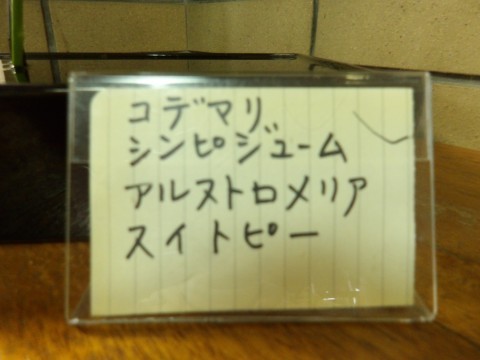 コデマリ
シンピジューム
アルストロメリア
スイトピー